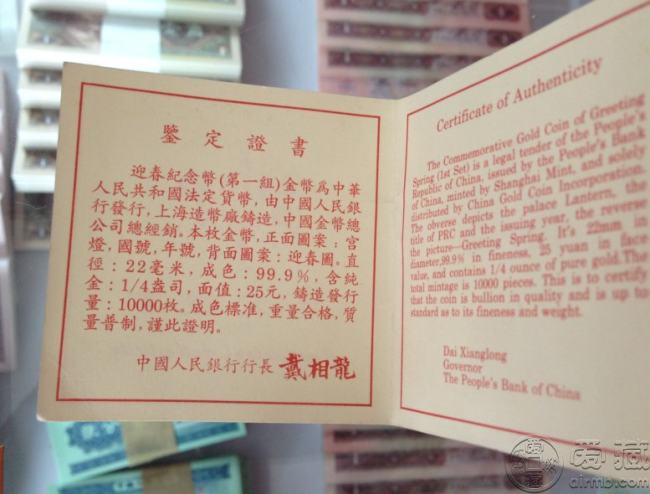 鑒定證書
迎春紀念幣(第一組)金幣為中華
人民共和國法定貨幣,由中國人民銀
行發行,上海造幣廠鑄造,中國金幣總
公司總經銷.本枚金幣,正面圖案:宮
燈,國號,年號,背面圖案:迎春圖.直
徑:22毫米,成色:99.9%,含純
金:1/4盎司,面值:25元,鑄造發行
量:10000枚.成色標准,重量合格,質
量普制,謹此證明.
中國人民銀行行長 戴相龍
Certificate of Authenticity
The Commemorative Gold Coin of Greeting
Spring (1st Set) is a legal tender of the People's
Republic of China, issued by the People's Bank
of China, minted by Shanghai Mint, and solely
distributed by China Gold Coin Incorporation.
The obverse depicts the palace Lantern, the
title of PRC and the issuing year, the reverse
the picture—Greeting Spring. It's 22mm in
diameter,99.9% in fineness, 25 yuan in face
value, and contains 1/4 ounce of pure gold.The
total mintage is 10000 pieces. This is to certify
that the coin is bullion in quality and is up to
standard as to its fineness and weight.
Dai Xianglong
Governor
The People's Bank of China
爱藏
airmb.com